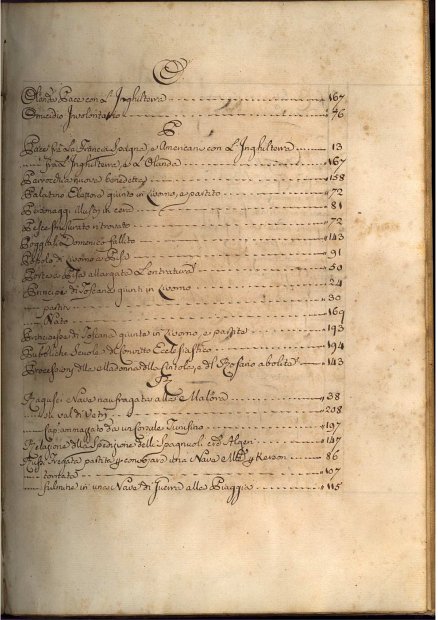 O
Olanda Pace con L'Inghilterra 167
Omicidio Involontario 76
P
Pace fra La Francia Spagna, e Americani con L'Inghilterra 13
fra L'Inghilterra, e L'Olanda 167
Parrocchia nuova benedetta 158
Palatino Elettore giunto in Livorno, e partito 72
Personaggi illustri di cera 81
Pesce smisurato ritrovato 72
Poggiali Domenico fallito 143
Popolo di Livorno a Pisa 91
Porta a Pisa allargata 50
Principe di Toscana giunti in Livorno 24
partiti 30
Nato 169
Principesse di Toscana giunte in Livorno, e partite 193
Pubbliche Scuole di Convitto Ecclesiastico 194
Processioni della Madonna della Cintola, e del Rosario abolita 143
R
Ragusei Nave naufragata alla Meloria 38
di Val di Vetri 208
da un Corsale Tunisino 197
Relazione della Spedizione delli Spagnuoli ad Algeri 147
Russa Fregata partita Nave 86
tornata 107
fulmine in una Nave di Guerra alla Piaggia 115